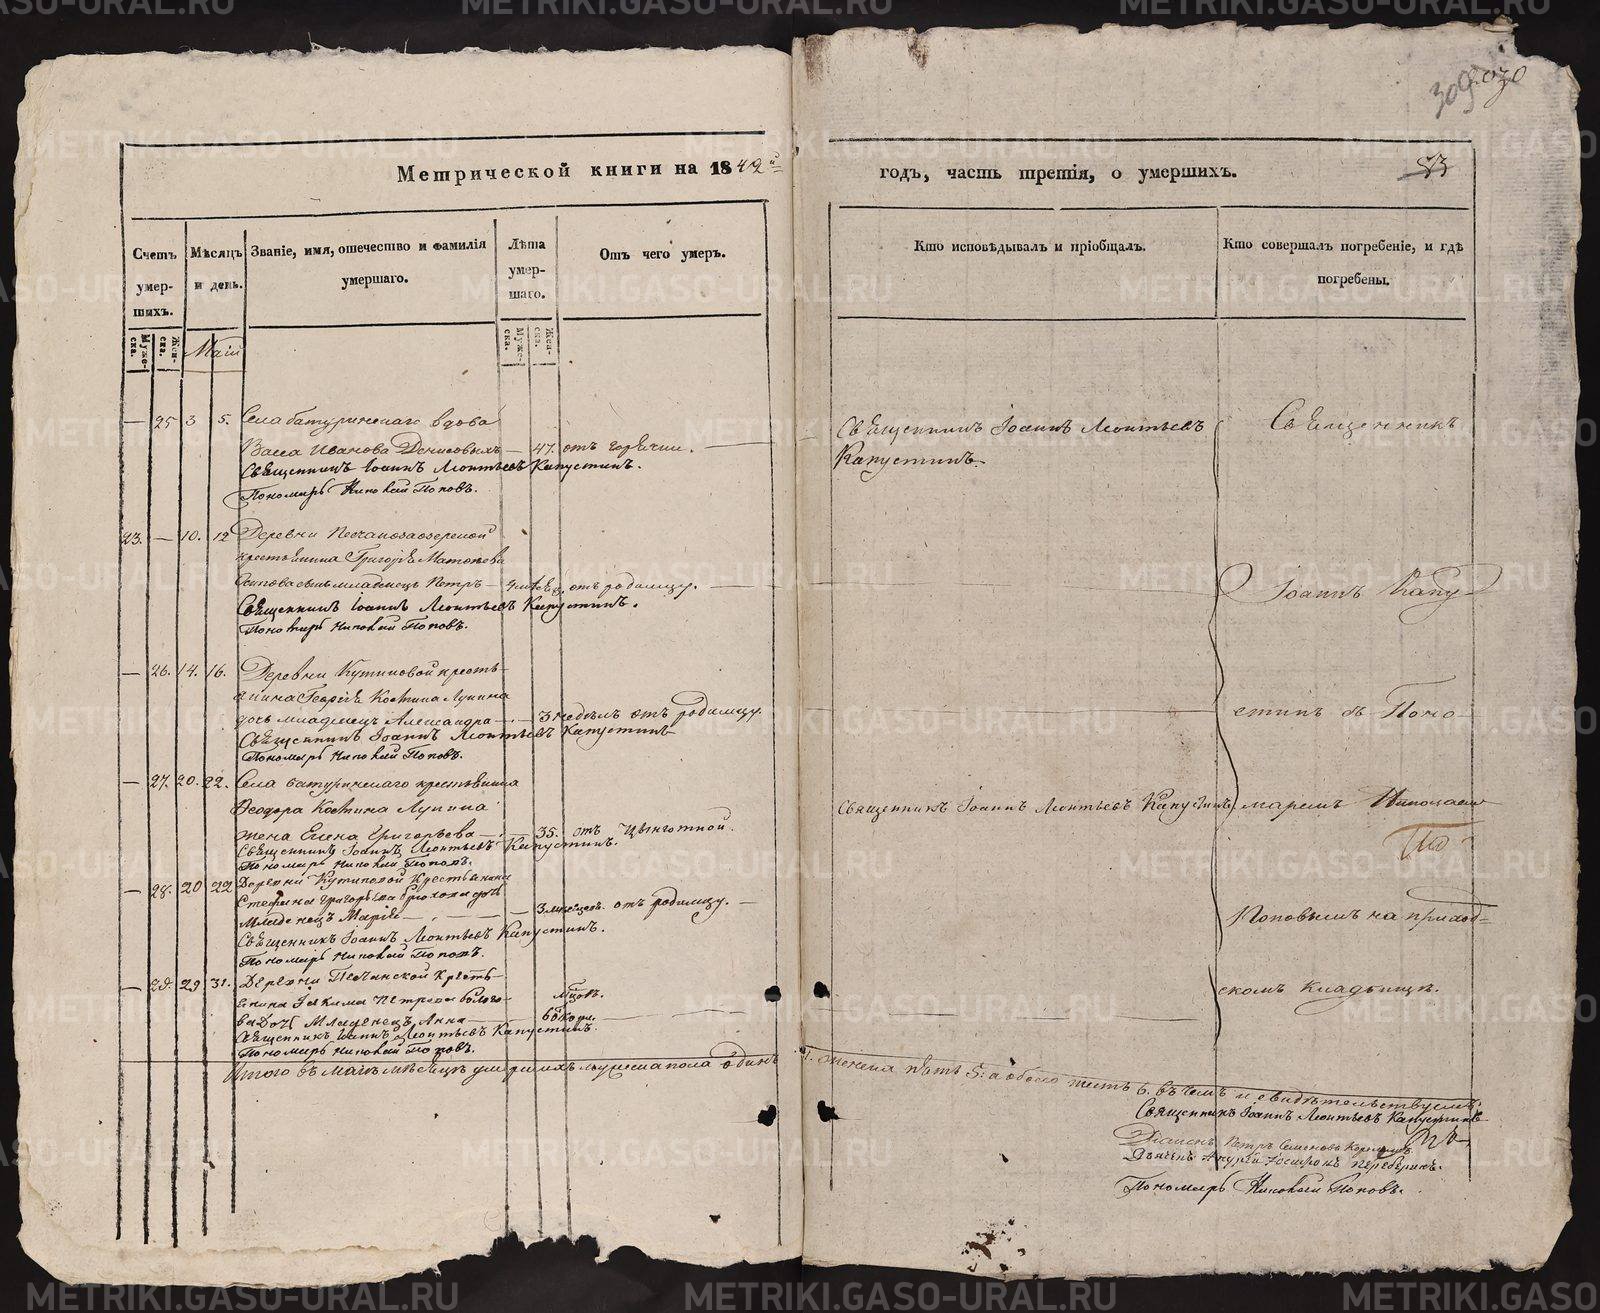 309
Метрической книги на 1842й
годъ, часть третія, о умершихъ.
Счетъ умер-шихъ.
Мѣсяцъ и день.
Званіе, имя, отечество и фамилія умершаго.
Лѣта умер-шаго.
Отъ чего умеръ.
Кто исповѣдывалъ и пріобщалъ.
Кто совершалъ погребеніе, и гдѣ погребены.
Муже-ска.
Жен-ска.
Маій
Муже-ска.
Жен-ска.
— 25 3 5. Села батуринскаго вдова
Васса Иванова Денисовыхъ — 47. отъ горячки. —
Священникъ Іоаннъ Леонтьевъ Капустинъ.
Пономарь Николай Поповъ.
Священникъ Іоаннъ Леонтьевъ
Капустинъ.
Священникъ
23. — 10. 12 Деревни
крестьянина Григорія
младенецъ Петръ — отъ родимцу. —
Священникъ Іоаннъ Леонтьевъ Капустинъ.
Пономарь Николай Поповъ.
Іоаннъ Капу-
— 26. 14. 16. Деревни Кутиковой кресть-
янина Георгія Костина Лунина
дочь младенецъ Александра — 3 недѣль отъ родимцу.
Священникъ Іоаннъ Леонтьевъ Капустинъ
Пономарь Николай Поповъ.
стинъ съ Поно-
— 27. 20. 22. Села батуринскаго крестьянина
Ѳеодора Костина Лунина
жена Елена Григорьева — 35. отъ цынготной.
Священникъ Іоаннъ Леонтьевъ Капустинъ.
Пономарь Николай Поповъ.
Священникъ Іоаннъ Леонтьевъ Капустинъ.
маремъ Николаем
— 28. 20 22 Деревни Кутиковой Крестьянина
Стефана Григорьева дочь
Младенецъ Марія — 3 мѣсяцев. отъ родимцу. —
Священникъ Іоаннъ Леонтьевъ Капустинъ.
Пономарь Николай Поповъ.
Поповымъ на приход-
— 29. 29 31. Деревни Песчанской Кресть-
янина Іакима Петрова
дочь Младенецъ Анна —
Священникъ Іоаннъ Леонтьевъ Капустинъ.
Пономарь Николай Поповъ.
скомъ кладбищѣ.
Итого въ маіѣ мѣсяцѣ умершихъ мужеска пола одинъ 1. женска пять 5: а обоего шесть 6. въ чемъ и свидѣтельствуемъ:
Священникъ Іоаннъ Леонтьевъ Капустинъ
Діаконъ Петръ Семеновъ
Дьячекъ Андрей
Пономарь Николай Поповъ.
METRIKI.GASO-URAL.RU